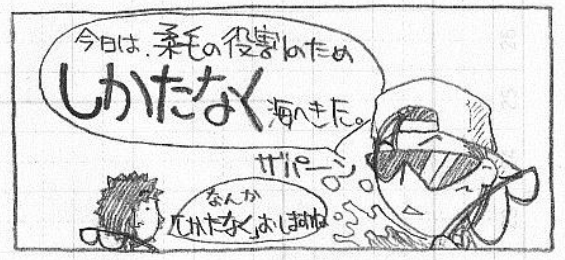 今日は、柔毛の役割のため
しかたなく海へきた。
ザパーン
なんか
「しかたなく」おしますね